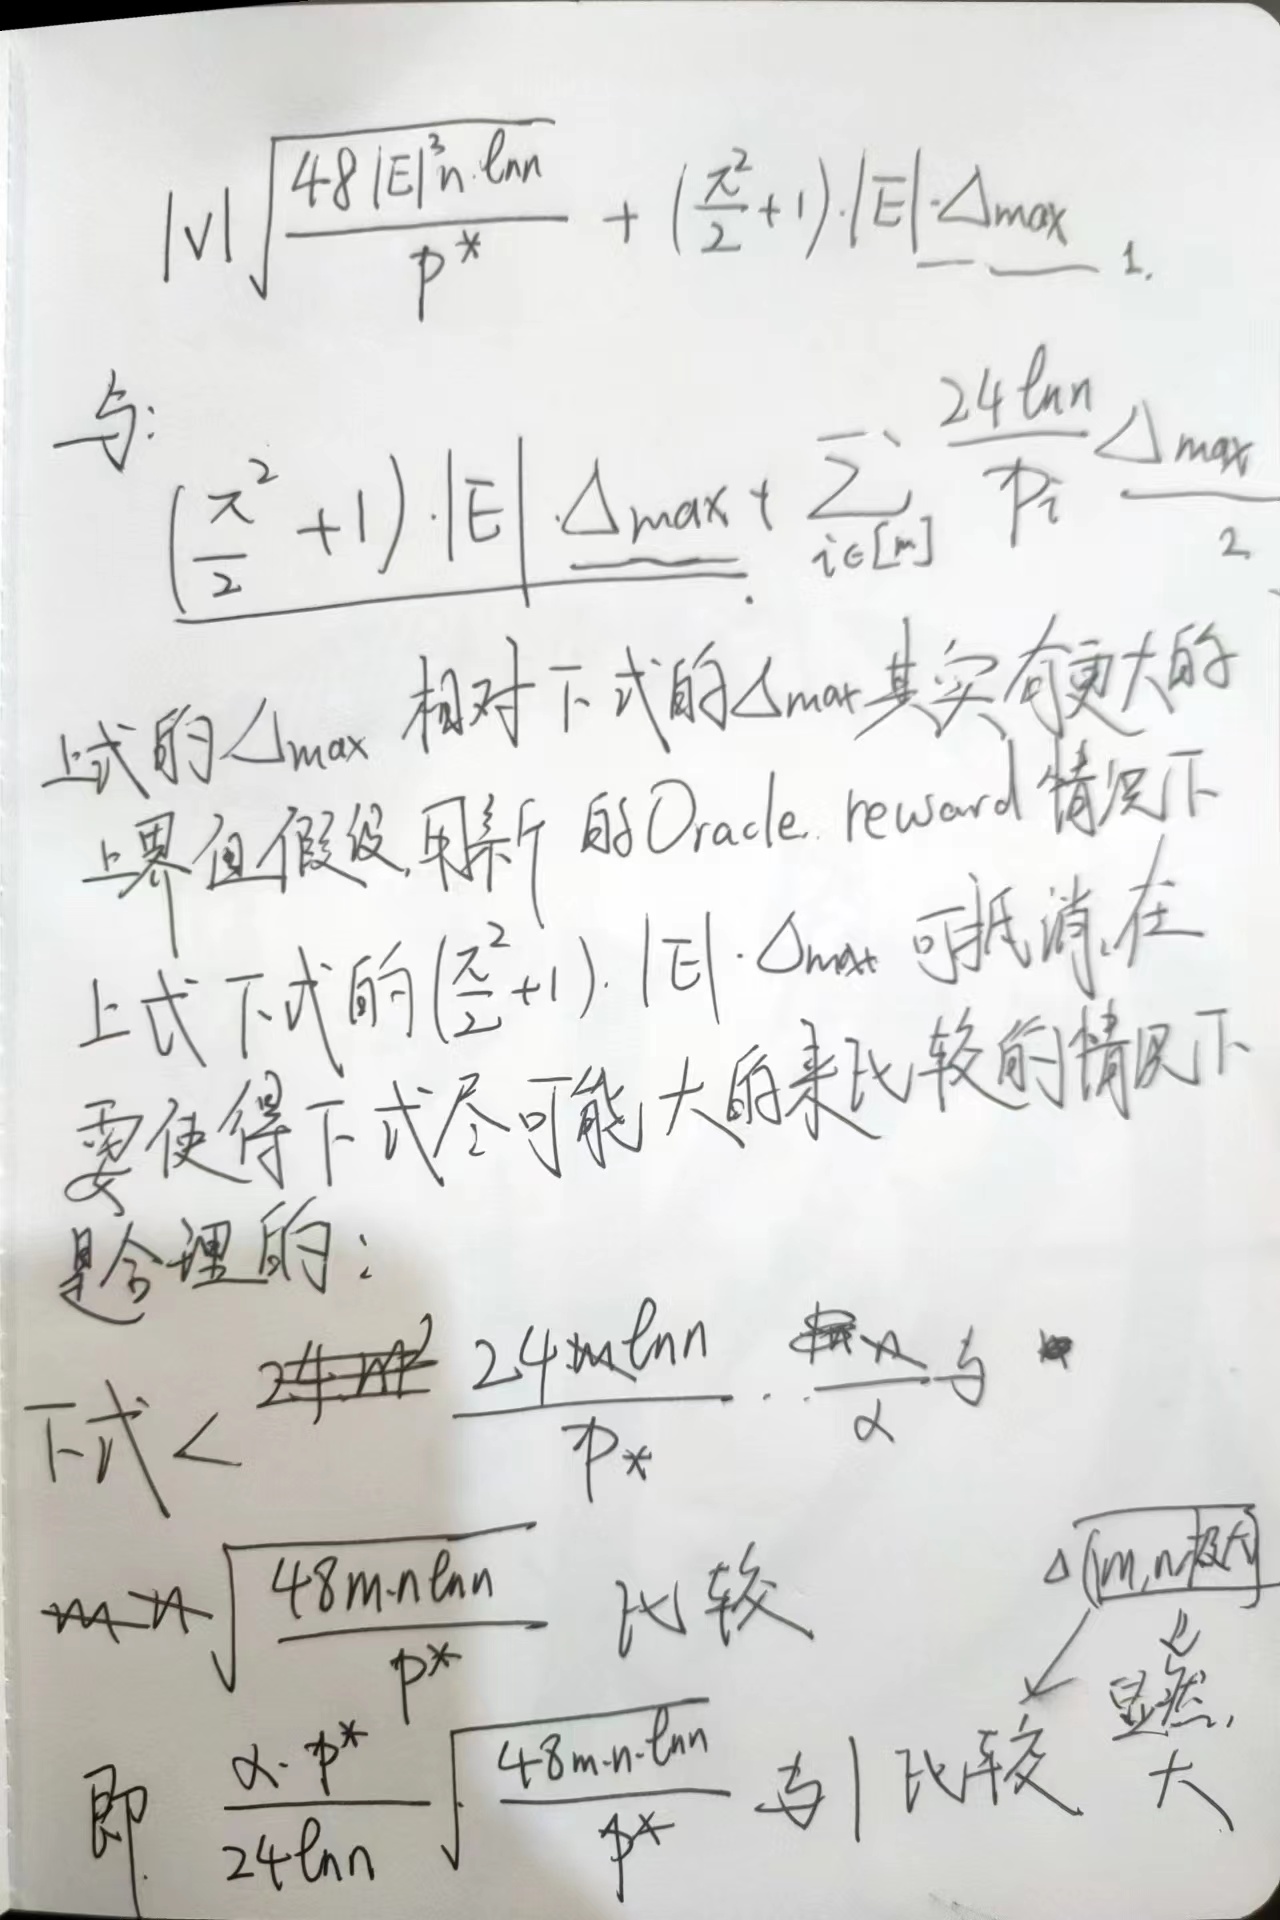 |V|√(48|E|³n·lnn / p*) + (π²/2 + 1)·|E|·Δmax 1.
与:
(π²/2 + 1)·|E|·Δmax + Σ i∈[m] 24lnn/pi Δmax 2
上式的Δmax 相对下式的Δmax其实有更大的
上界但假设,用新的Oracle reward 情况下
上式下式的(π²/2+1)·|E|·Δmax 可抵消,在
要使得下式尽可能大的来比较的情况下
是合理的:
下式 < 24mlnn/p* · n/α 与
m n √(48m·nlnn / p*) 比较 Δ(m,n极大)
即 α·p*/24lnn √(48m·n·lnn / p*) 与1比较 显然,大